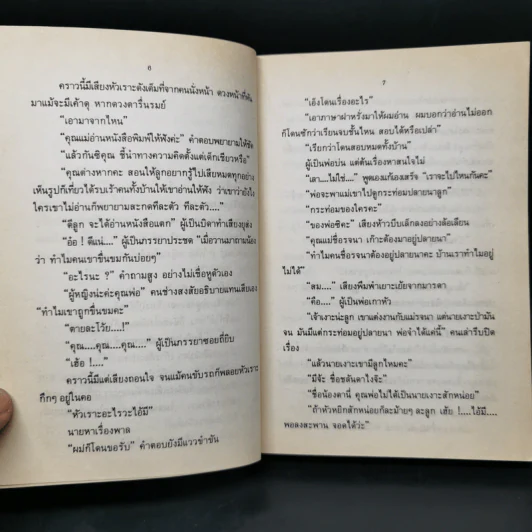 ๖
คราวนี้มีเสียงหัวเราะดังเต็มที่จากคนนั่งหน้า ดวงหน้าที่หัน
มาแม้จะมีเค้าดุ หากดวงตารื่นรมย์
“เอามาจากไหน”
“คุณแม่อ่านหนังสือพิมพ์ให้ฟังค่ะ” คำตอบพยายามให้ชัด
“แล้วกันซิคุณ ชี้นำทางความคิดตั้งแต่เด็กเชียวหรือ”
“คุณต่างหากคะ สอนให้ลูกอยากรู้ไปเสียหมดทุกอย่าง
เห็นรูปก็เที่ยวได้รบเร้าคนทั้งบ้านให้เขาอ่านให้ฟัง ว่าเขาว่ายังไง
ใครเขาไม่อ่านก็พยายามสะกดทีละตัว ทีละตัว....”
“ดีลูก จะได้อ่านหนังสือแตก” ผู้เป็นบิดาทำเสียงยุส่ง
“อ๋อ ! ดีแน่....” ผู้เป็นภรรยาประชด “เมื่อวานมาถามน้อง
ว่า ทำไมคนเขาขื่นขมกันบ่อยๆ”
“อะไรนะ ?” คำถามสูง อย่างไม่เชื่อหูตัวเอง
“ผู้หญิงน่ะค่ะคุณพ่อ” คนช่างสงสัยอธิบายแทนเสียเอง
“ทำไมเขาถูกขื่นขมคะ”
“ตายละโว้ย....!”
“คุณ....คุณ....คุณ....” ผู้เป็นภรรยาซอยถี่ยิบ
“เฮ้อ !....”
คราวนี้มีแต่เสียงถอนใจ จนแม้คนขับรถก็พลอยหัวเราะ
กึกๆ อยู่ในคอ
“หัวเราะอะไรวะไอ้มี”
นายหาเรื่องพาล
“ผมก็โดนขอรับ” คำตอบยังมีแววขำขัน
๗
“เอ็งโดนเรื่องอะไร”
“เอาภาษาฝาหรั่งมาให้ผมอ่าน ผมบอกว่าอ่านไม่ออก
ก็โดนซักว่าเรียนจบชั้นไหน สอบได้หรือเปล่า”
“เรียกว่าโดนสอบหมดทั้งบ้าน”
ผู้เป็นพ่อบ่น แต่ต้นเรื่องหาสนใจไม่
“เสา....ไม่ไช่....” พูดเองแก้เองเสร็จ “เราจะไปไหนกันคะ”
“พ่อจะพาแม่เขาไปดูกระท่อมปลายนาลูก”
“กระท่อมของใครคะ”
“ของพ่อซิคะ” เสียงห้าวบีบเล็กลงอย่างล้อเลียน
“คุณแม่ชื่อรจนา เก๊าะต้องมาอยู่ปลายนา”
“ทำไมคนชื่อรจนาต้องอยู่ปลายนาคะ บ้านเราทำไมอยู่
ไม่ได้”
“สม....” เสียงพึมพำเยาะเย้ยจากมารดา
“คือ....” ผู้เป็นพ่อเกาหัว
“เจ้าเงาะน่ะลูก เขาแต่งงานกับแม่รจนา แต่นายเงาะป่ามัน
จน มันมีแต่กระท่อมอยู่ปลายนา พ่อจำได้แค่นี้” คนเล่ารีบปิด
เรื่อง
“แล้วนายเงาะเขามีลูกไหมคะ”
“มีจ้ะ ชื่อขลันดาไงจ๊ะ”
“ชื่อน้องดานี่ คุณพ่อไม่ได้เป็นนายเงาะสักหน่อย”
“ถ้าหัวหยิกสักหน่อยก็ละม้ายๆ ละลูก เฮ้ย !....ไอ้มี....
พอลงสะพาน จอดได้ว่ะ”